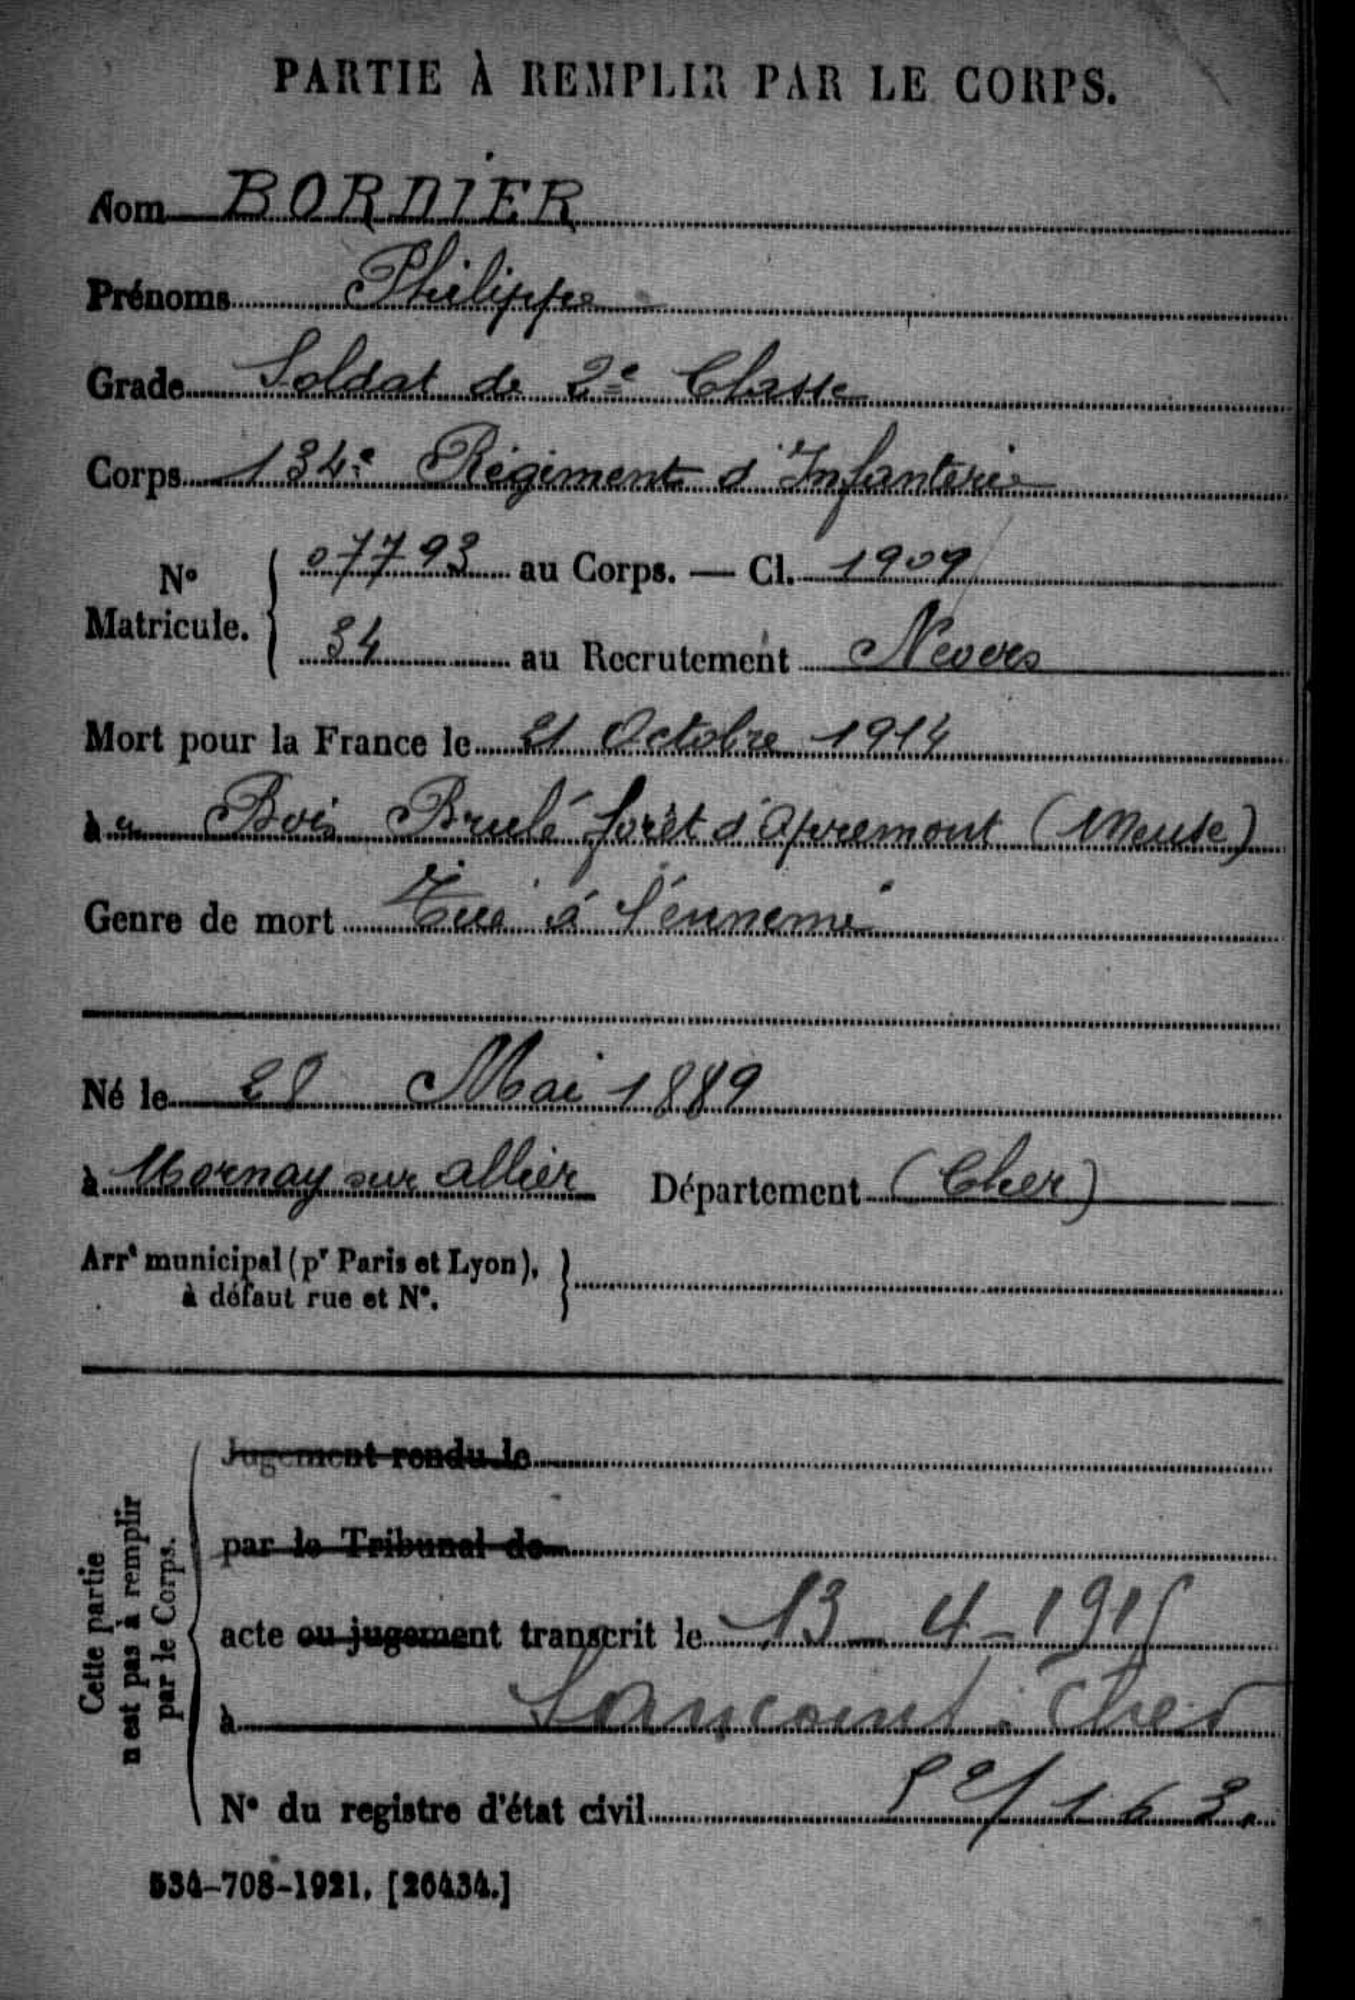 PARTIE À REMPLIR PAR LE CORPS.
Nom BORDIER
Prénoms Philippe
Grade Soldat de 2e Classe
Corps 134e Régiment d'Infanterie
No Matricule. 07793 au Corps. — Cl. 1909
34 au Recrutement Nevers
Mort pour la France le 21 Octobre 1914
à Bois Brulé forêt d'Apremont (Meuse)
Genre de mort Tué à l'ennemi
Né le 28 Mai 1889
à Mornay sur allier Département (Cher)
Arrt municipal (pr Paris et Lyon),
à défaut rue et No.
Cette partie
n'est pas à remplir
par le Corps.
Jugement rendu le
par le Tribunal de
acte ou jugement transcrit le 13-4-1915
à Sancoins Cher
No du registre d'état civil
534-708-1921. [26434.]